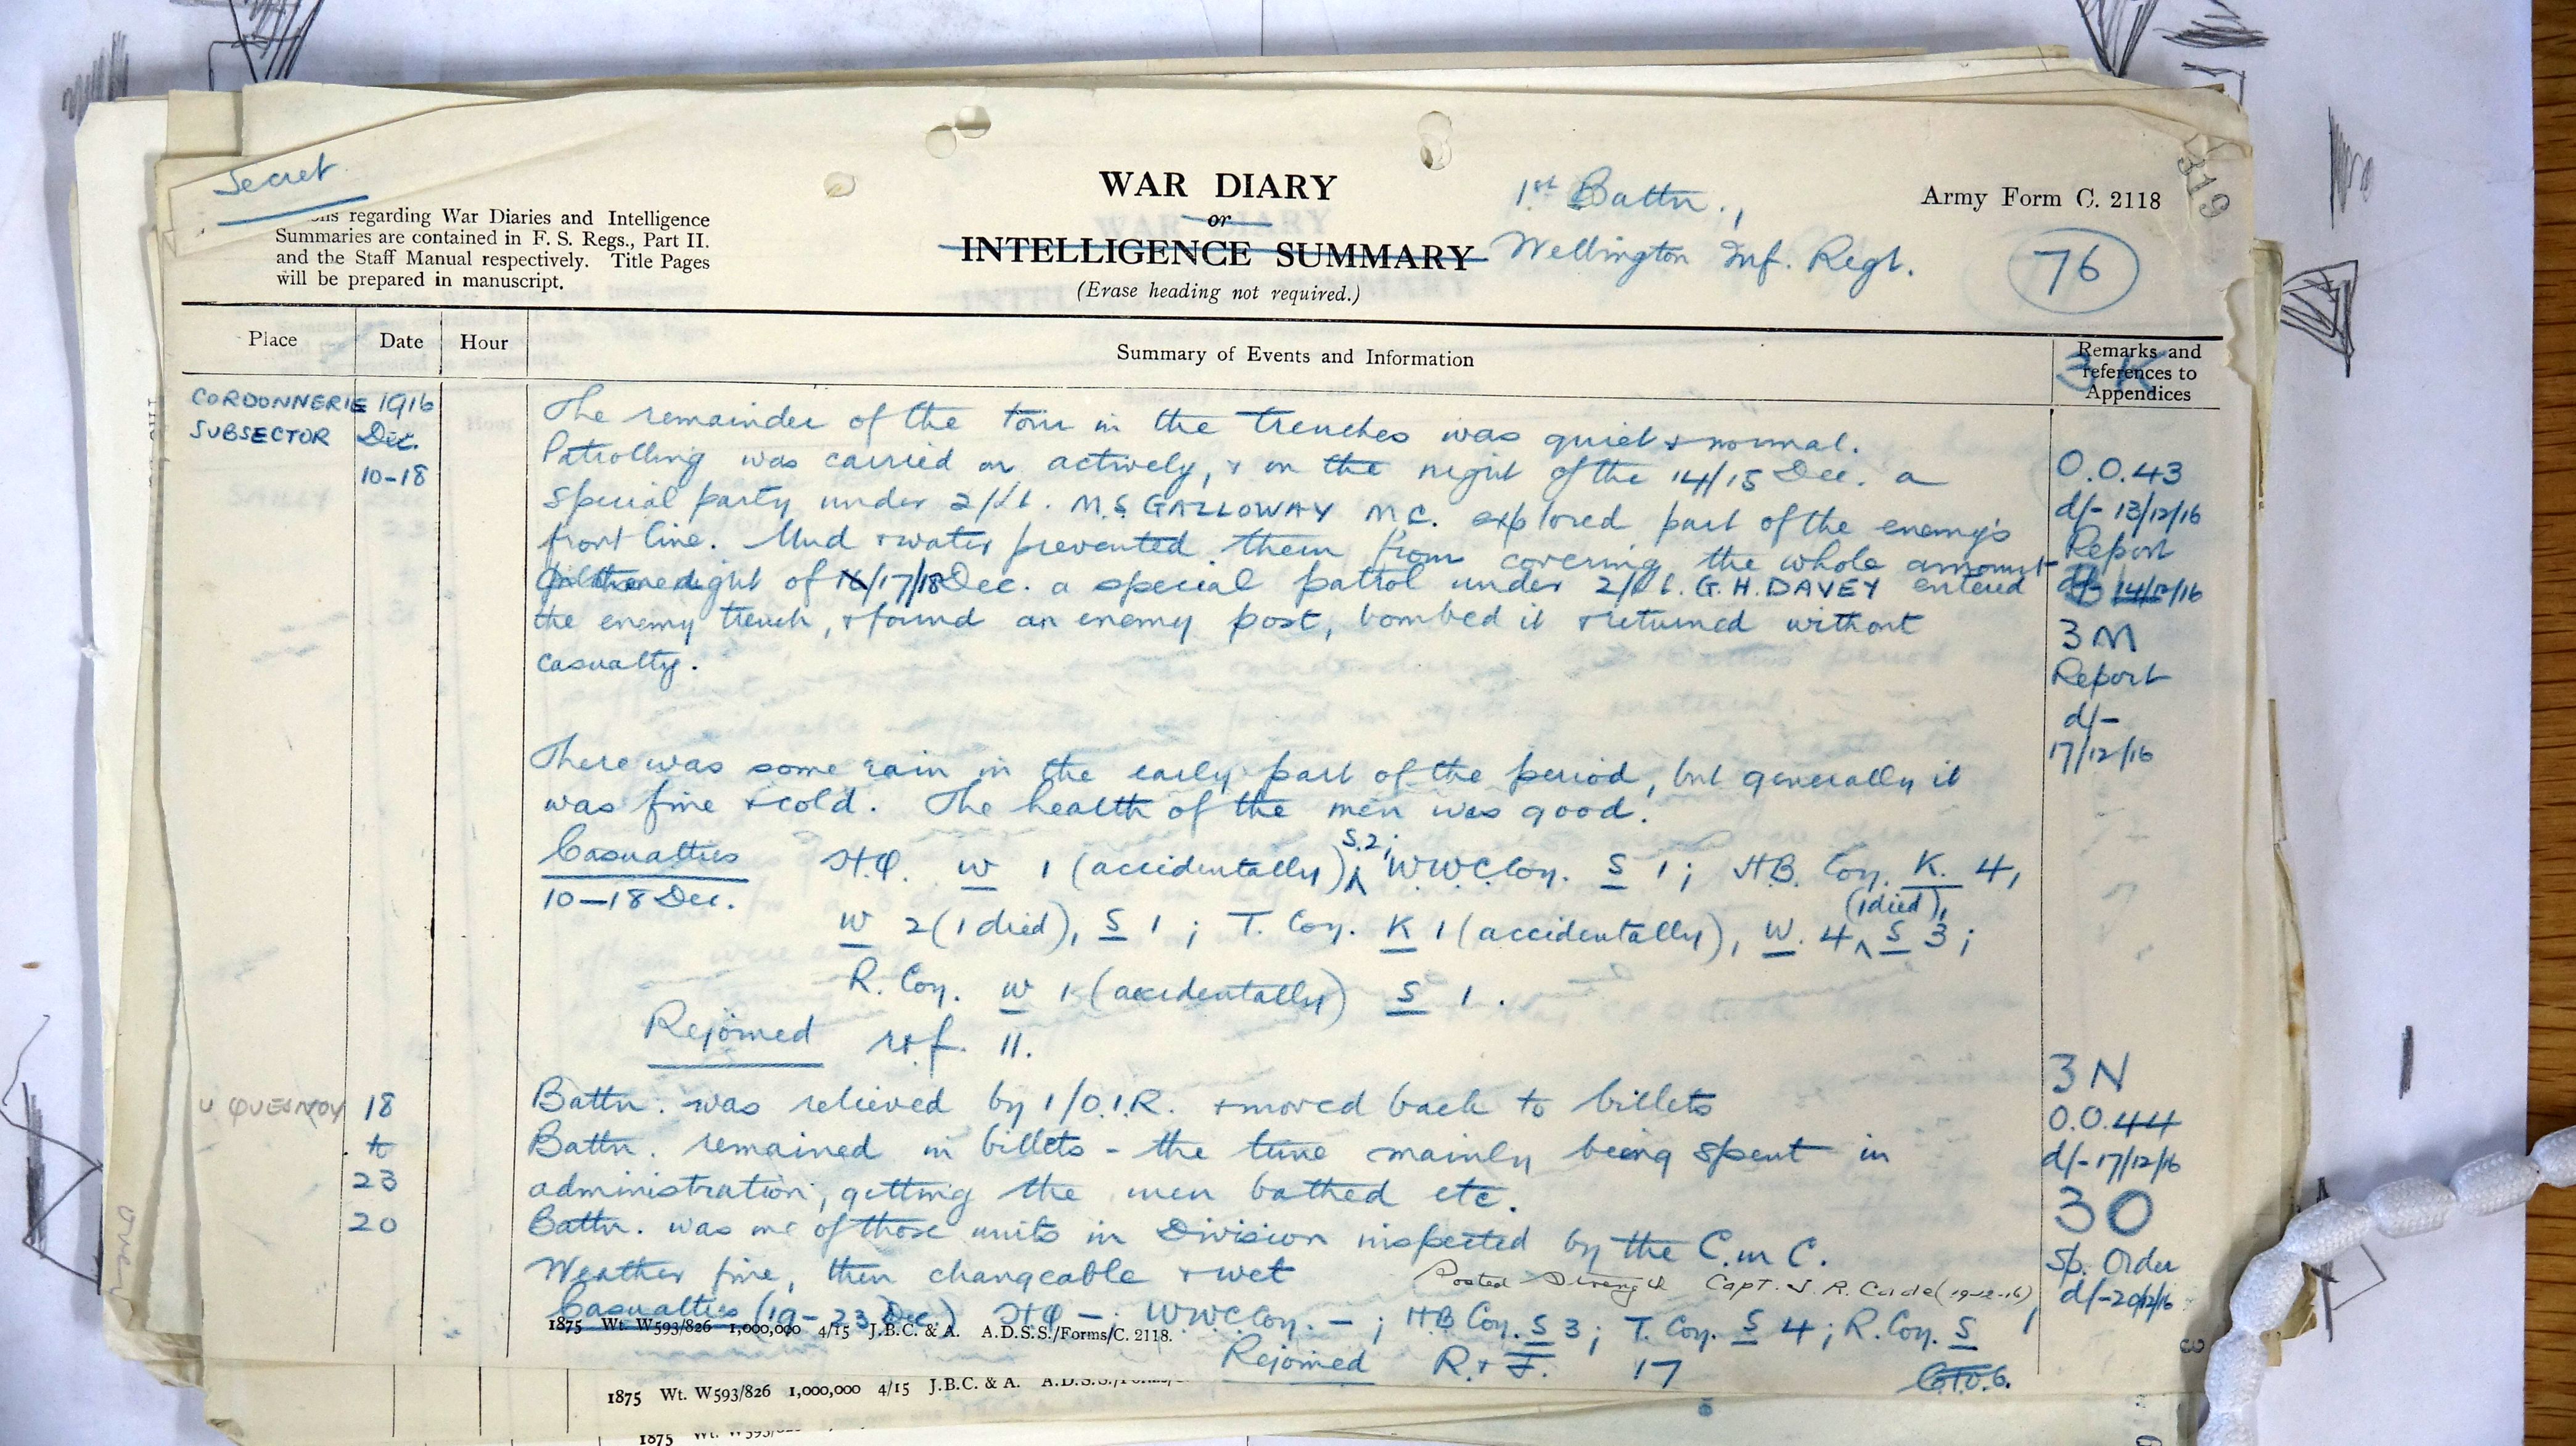 Secret
regarding War Diaries and Intelligence
Summaries are contained in F. S. Regs., Part II.
and the Staff Manual respectively. Title Pages
will be prepared in manuscript.
WAR DIARY
or
INTELLIGENCE SUMMARY
(Erase heading not required.)
1st Battn.,
Wellington Inf. Regt.
Army Form C. 2118
319
76
Place
Date
Hour
Summary of Events and Information
Remarks and
references to
Appendices
3K
CORDONNERIE
SUBSECTOR
1916
Dec.
10-18
The remainder of the tour in the trenches was quiet & normal.
Patrolling was carried on actively, & on the night of the 14/15 Dec. a
special party under 2/Lt. M.S. GALLOWAY M.C. explored part of the enemy's
front line. Mud & water prevented them from covering the whole amount
night of 17/18 Dec. a special patrol under 2/Lt. G.H. DAVEY entered
the enemy trench, & found an enemy post, bombed it & returned without
casualty.
O.O.43
d/- 13/12/16
Report
d/- 14/12/16
3M
Report
d/-
17/12/16
There was some rain in the early part of the period, but generally it
was fine & cold. The health of the men was good.
Casualties
10-18 Dec.
H.Q. W 1 (accidentally) S.2; W.W.C Coy. S 1; H.B. Coy. K. 4,
W 2 (1 died), S 1; T. Coy. K 1 (accidentally), W. 4 (1 died), S 3;
R. Coy. W 1 (accidentally) S 1.
Rejoined r+f. 11.
QUESNOY
18
to
23
20
Battn. was relieved by 1/O.I.R. & moved back to billets
Battn. remained in billets - the time mainly being spent in
administration, getting the men bathed etc.
Battn. was one of those units in Division inspected by the C. in C.
Weather fine, then changeable & wet
Posted Strength Capt. J. R. (19-12-16)
Casualties (19-23 Dec.) H.Q -; W.W.C Coy. -; H.B Coy. S 3; T. Coy. S 4; R. Coy. S 1
Rejoined R. & F. 17
3N
O.O.44
d/- 17/12/16
3O
Sp. Order
d/- 20/12/16
1875 Wt. W593/826 1,000,000 4/15 J.B.C. & A. A.D.S.S./Forms/C. 2118.
1875 Wt. W593/826 1,000,000 4/15 J.B.C. & A.
1875